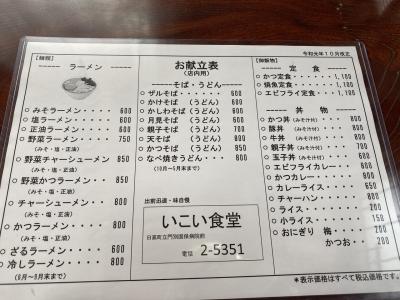 令和元年10月改正
【麺類】
ラーメン
みそラーメン 600
塩ラーメン 600
正油ラーメン 600
野菜ラーメン 750
(みそ・塩・正油)
野菜チャーシューメン 850
(みそ・塩・正油)
野菜かつラーメン 850
(みそ・塩・正油)
チャーシューメン 800
(みそ・塩・正油)
かつラーメン 800
(みそ・塩・正油)
ざるラーメン 600
冷しラーメン 800
(6月〜9月末まで)
お献立表
(店内用)
そば・うどん
ザルそば 600
かけそば (うどん)
かしわそば (うどん)
月見そば (うどん)
親子そば (うどん)
天そば (うどん)
かつそば (うどん) 850
なべ焼きうどん 800
(10月〜5月末まで)
出前迅速・味自慢
いこい食堂
日高町立門別国保病院前
電話 2-5351
【御飯物】
定食
かつ定食 1,100
焼魚定食 1,100
エビフライ定食 1,100
丼物
かつ丼(みそ汁付)
豚丼(みそ汁付)
牛丼(みそ汁付)
親子丼(みそ汁付)
玉子丼(みそ汁付)
エビフライカレー
かつカレー
カレーライス 650
チャーハン 800
ライス 200
小ライス 150
おにぎり 梅 200
かつお 200
*表示価格はすべて税込価格です。